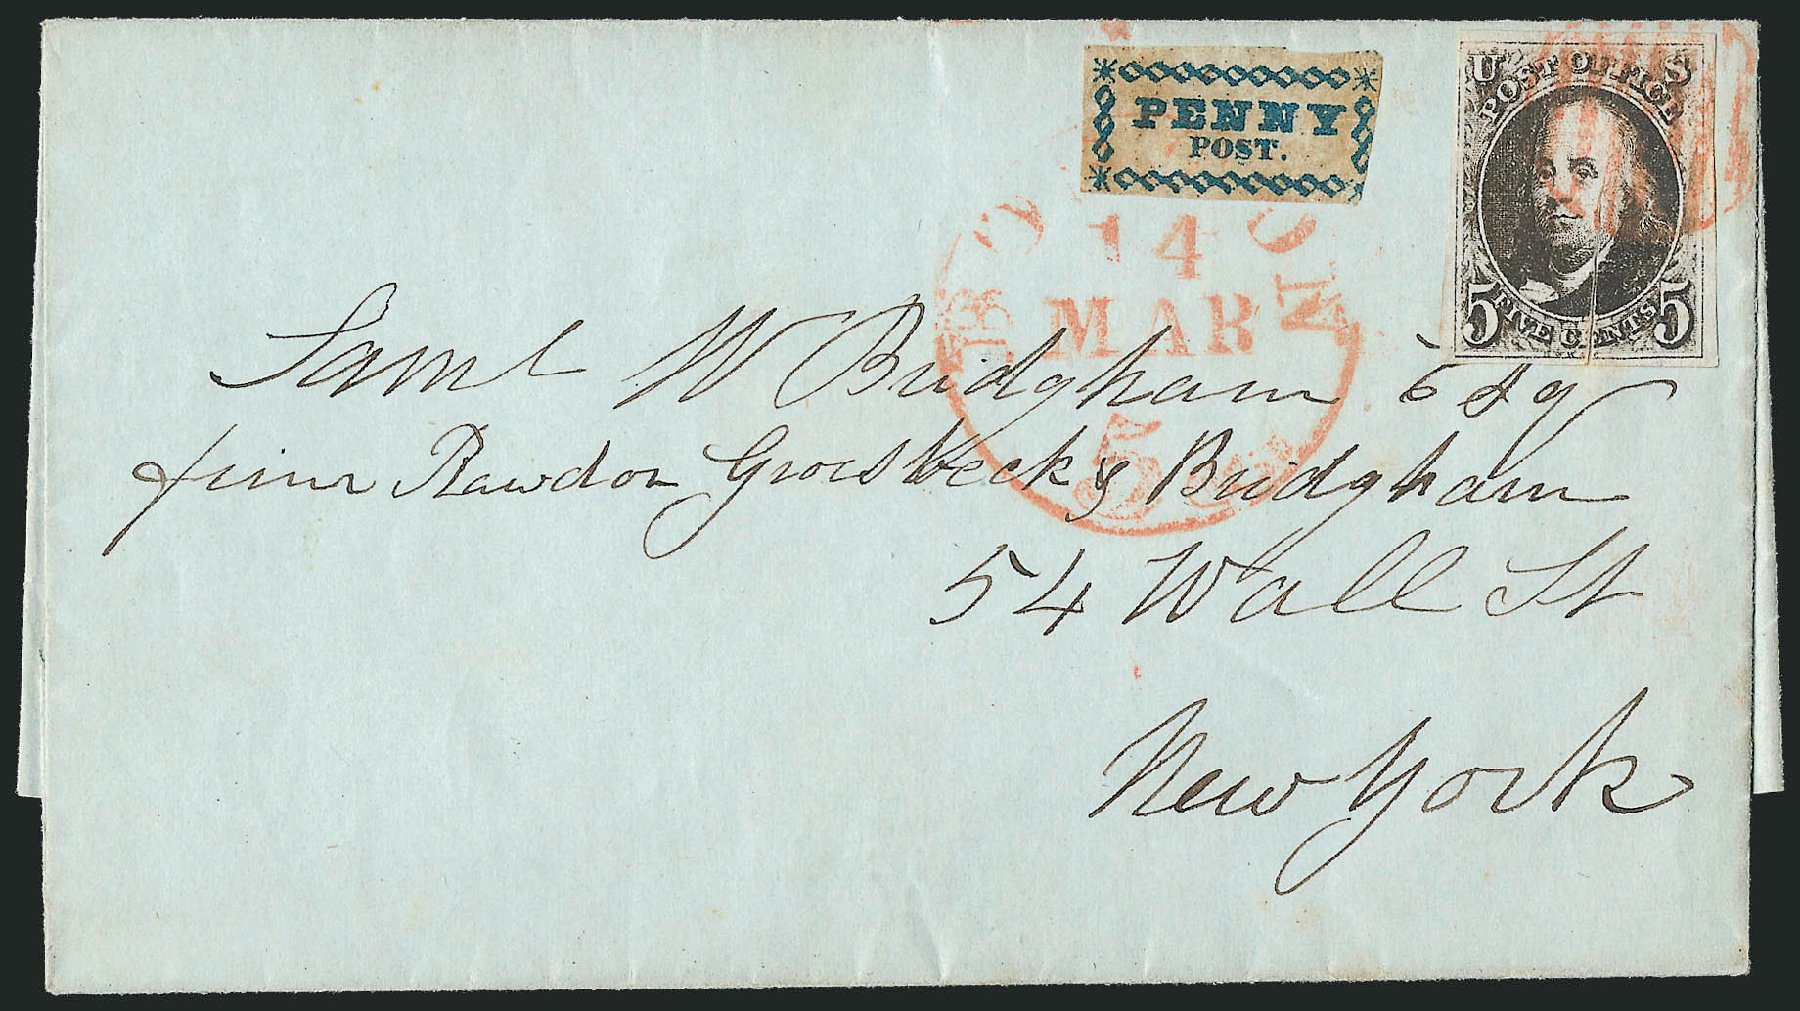 PENNY
POST.
U S
POST OFFICE
5 FIVE CENTS 5
BOSTON
14
MAR
5
Saml W Bridgham Esq
firm Rawdon Groesbeck & Bridgham
54 Wall St
New York